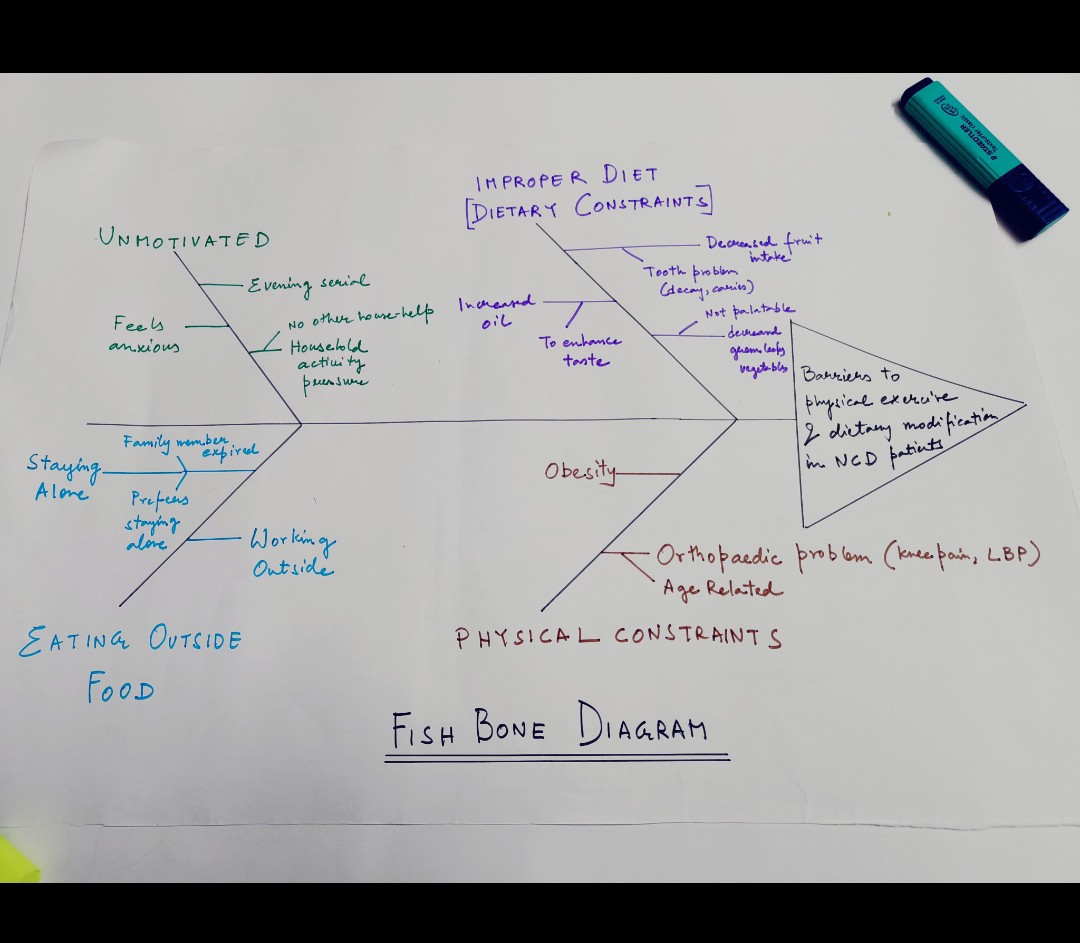 IMPROPER DIET
[DIETARY CONSTRAINTS]
UNMOTIVATED
Evening serial
Feels
anxious
No other house-help
Household
activity
pressure
Decreased fruit
intake
Tooth problem
(decay, caries)
Increased
oil
To enhance
taste
Not palatable
decreased
green leafy
vegetables
Barriers to
physical exercise
& dietary modification
in NCD patients
Family member
expired
Staying
Alone
Prefers
staying
alone
Working
Outside
EATING OUTSIDE
FOOD
Obesity
Orthopaedic problem (knee pain, LBP)
Age Related
PHYSICAL CONSTRAINTS
FISH BONE DIAGRAM
STAEDTLER
Textsurfer classic